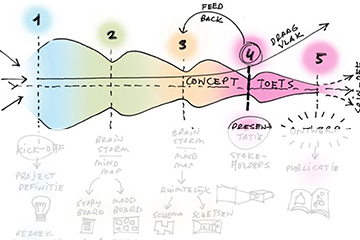 FEED
BACK
DRAAG
VLAK
1
2
3
4
5
CONCEPT
TOETS
KICK-OFF
PROJECT
DEFINITIE
BRAIN
STORM
MIND
MAP
STORY
BOARD
MOOD
BOARD
BRAIN
STORM
MIND
MAP
RUIMTELIJK
SCHEMA
SCHETSEN
PRESEN
TATIE
STAKE-
HOLDERS
ONTWERP
PUBLICATIE